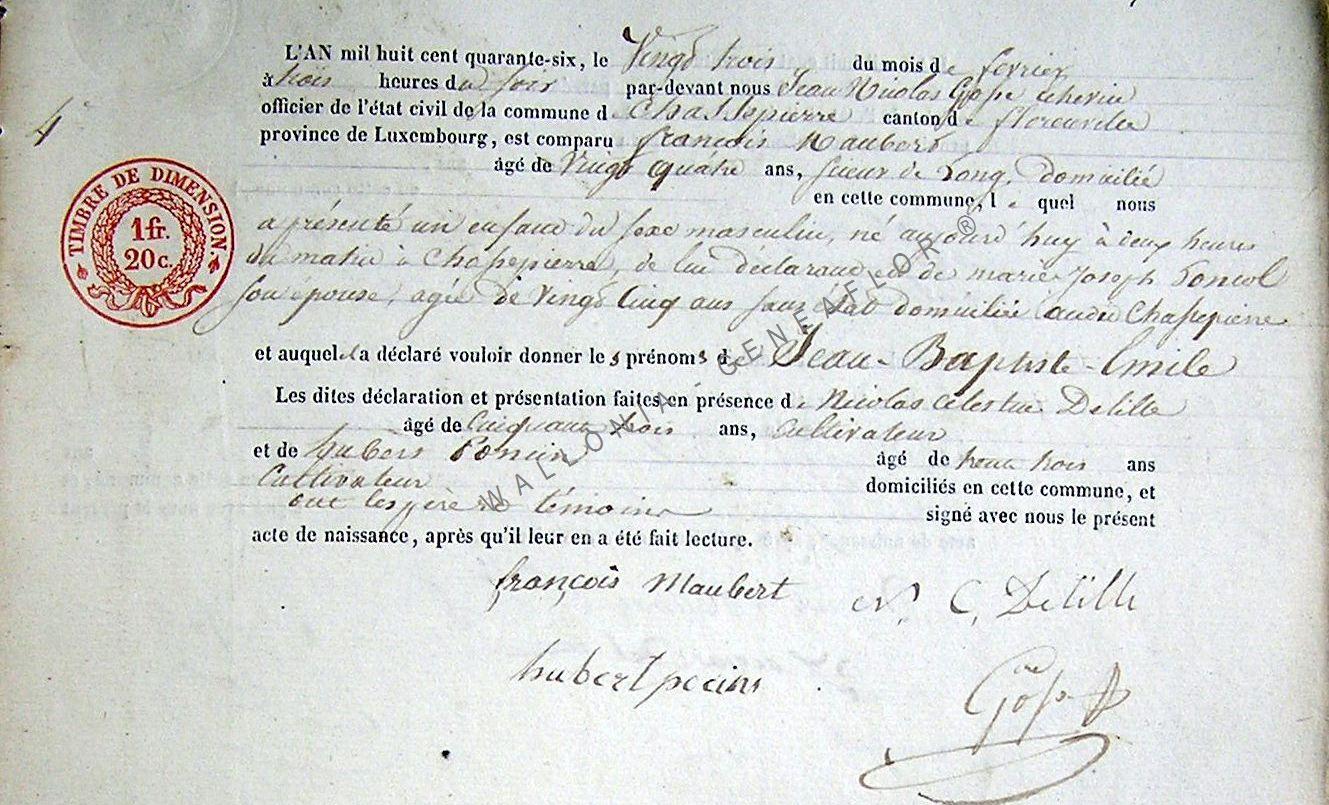 L'AN mil huit cent quarante-six, le Vingt trois du mois de fevrier
à trois heures du soir par-devant nous Jean Nicolas Gofse Echevin
officier de l'état civil de la commune d e Chassepierre canton d e florenville
province de Luxembourg, est comparu françois Maubert
âgé de Vingt quatre ans, scieur de Long, domicilié
en cette commune, l e quel nous
4
TIMBRE DE DIMENSION
1 fr.
20 c.
a présenté un enfant du sexe masculin, né aujourd'huy à deux heures
du matin à Chassepierre, de lui déclarant et de marie Joseph
son épouse, agée de Vingt Cinq ans sans état domiciliée audit Chassepierre
et auquel il a déclaré vouloir donner le s prénom s de Jean-Baptiste-Emile
Les dites déclaration et présentation faites en présence d e Nicolas Célestin Delille
âgé de Cinquante trois ans, Cultivateur
et de hubert Poncin âgé de trente trois ans
Cultivateur domiciliés en cette commune, et
ont les père et témoins signé avec nous le présent
acte de naissance, après qu'il leur en a été fait lecture.
françois Maubert N. C. Delille
hubert
WALLONIA GENEAFLOR ®